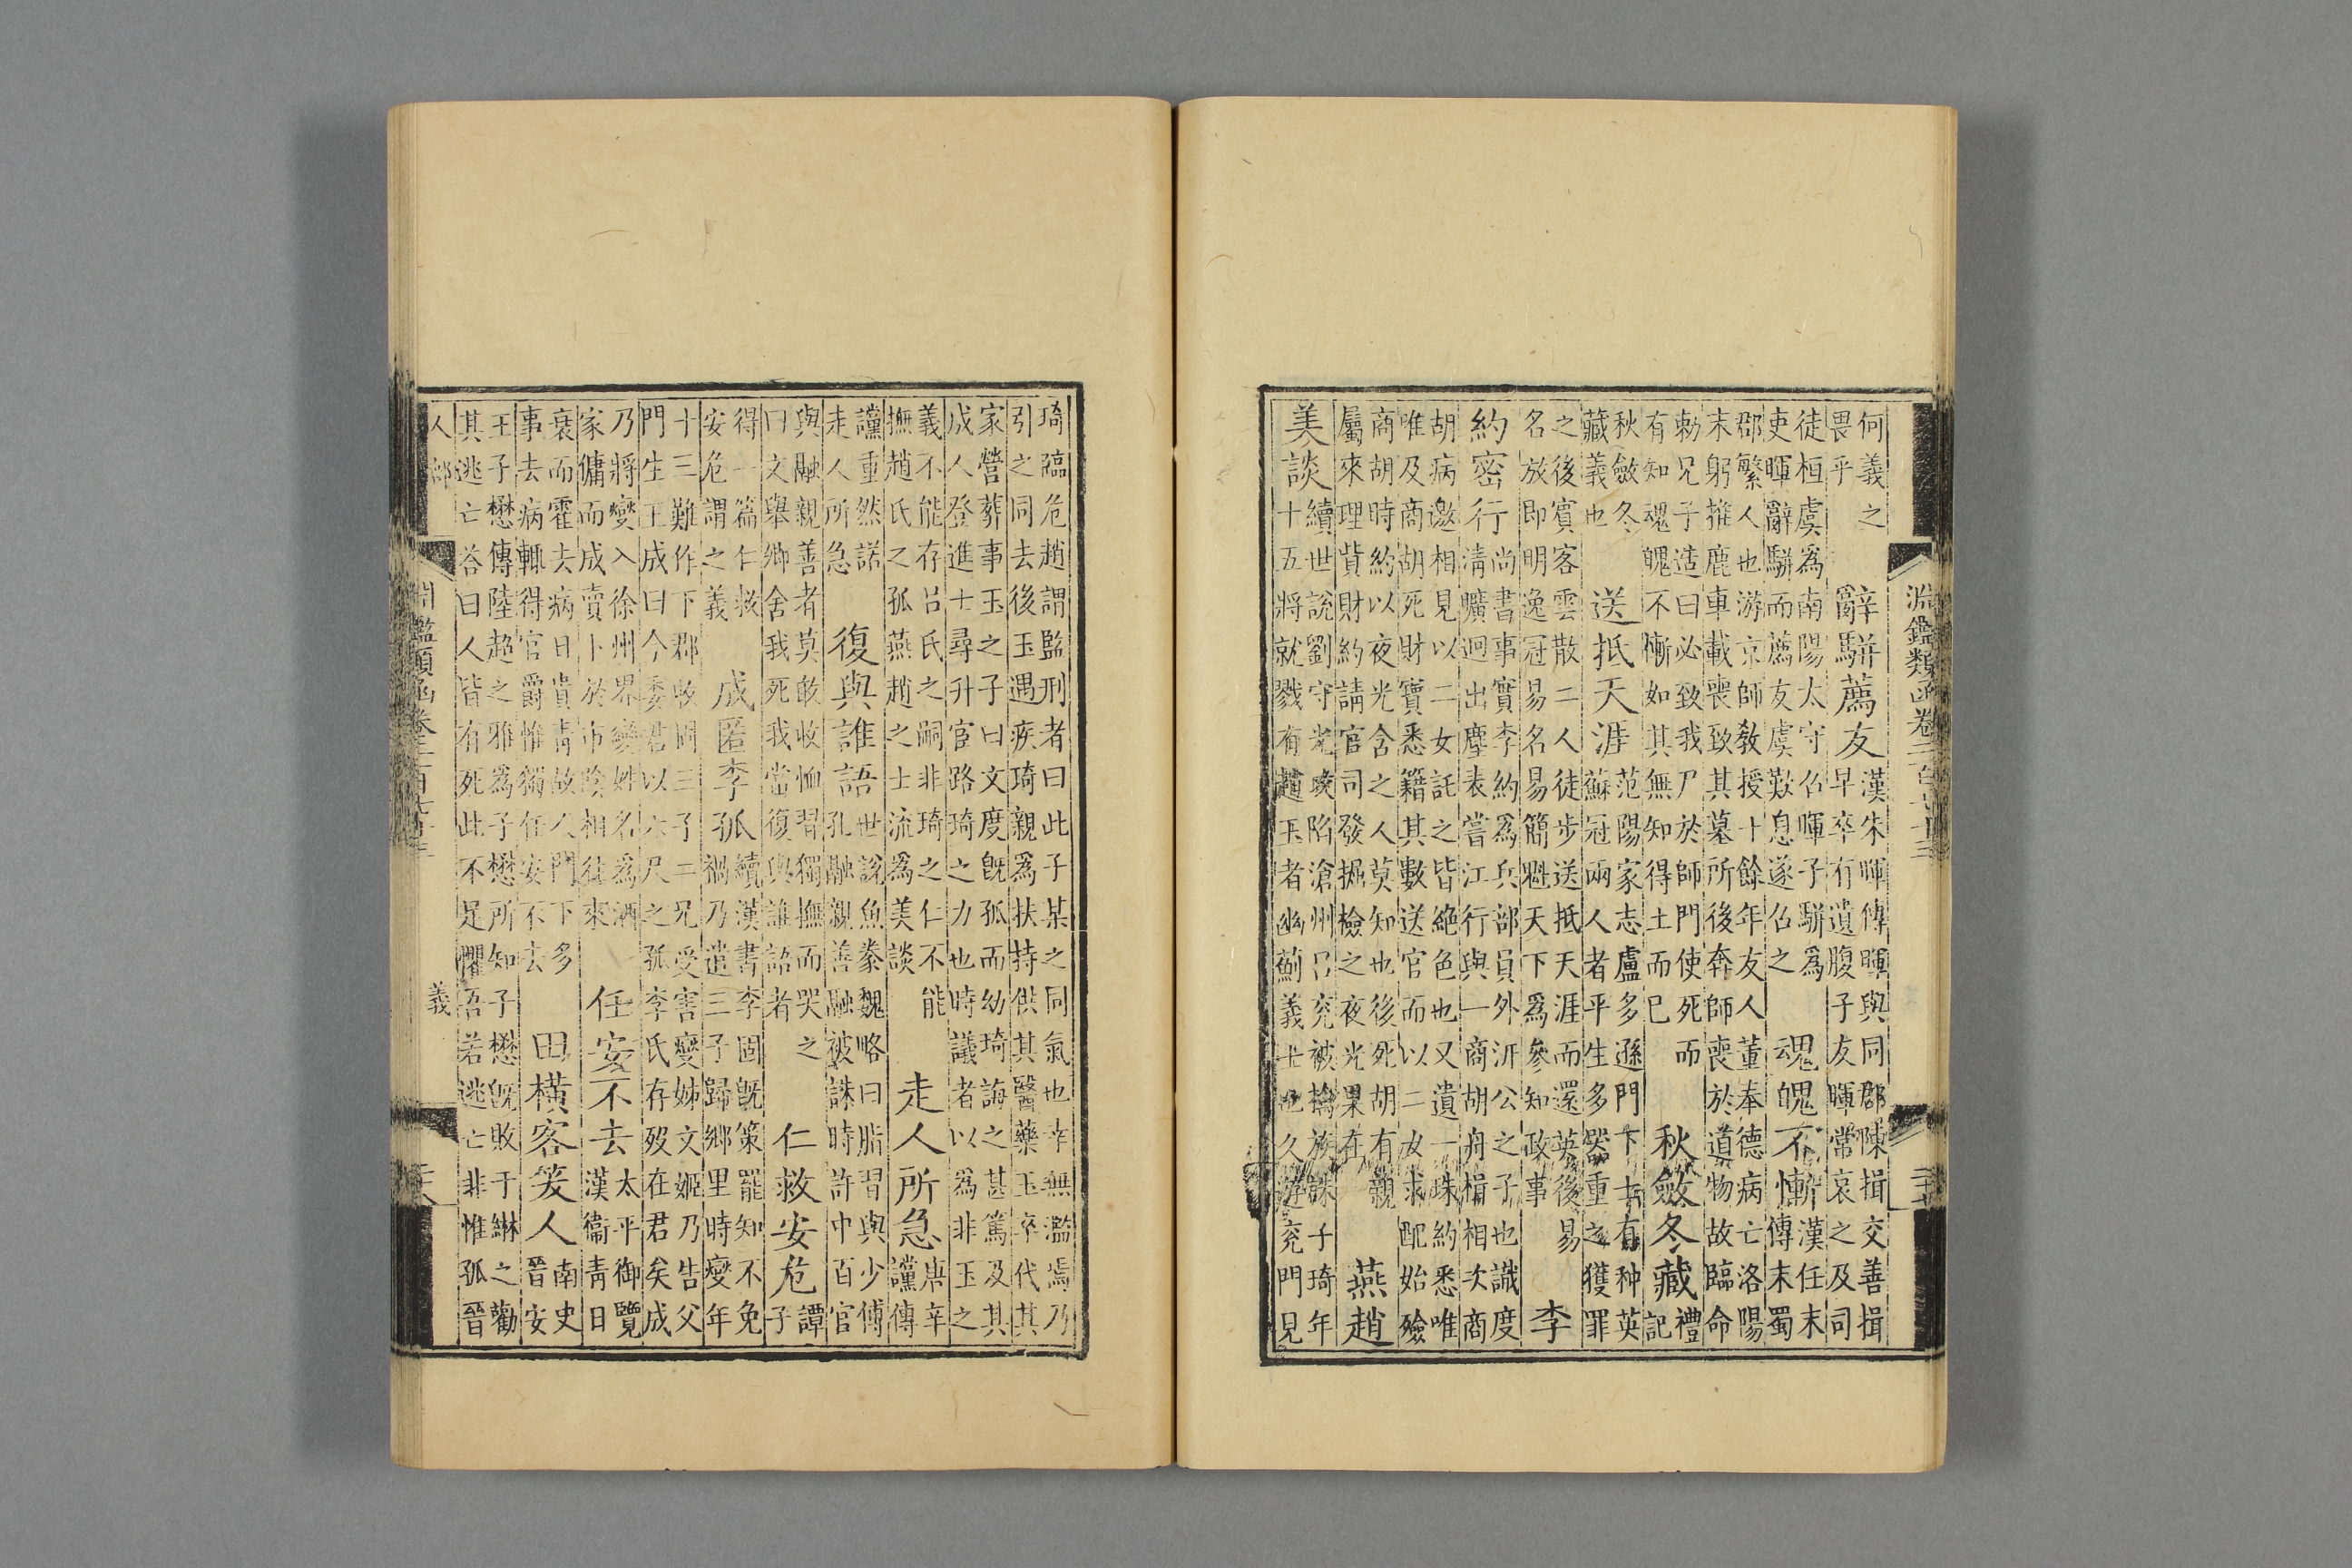 淵鑑類函卷二百七十三
何義之
畏乎
辭駢薦友
漢朱暉傳暉與同郡陳揖交善揖
早卒有遺腹子友暉常哀之及司
徒桓虞爲南陽太守召暉子駢爲
吏暉辭駢而薦友虞歎息遂召之
魂魄不慚
漢任末
傳末蜀
郡繁人也游京師教授十餘年友人董奉德病亡洛陽
末躬推鹿車載喪致其墓所後奔師喪於道物故臨命
勅兄子造曰必致我尸於師門使死而
有知魂魄不慚如其無知得土而已
秋斂冬藏
禮
記
秋斂冬
藏義也
送抵天涯
范陽家志盧多遜門下士有种英
蘇冠兩人者平生多器重之獲罪
之後賓客雲散二人徒步送抵天涯而還英後易
名放即明逸冠易名易簡魁天下爲參知政事
李
約密行
尚書事實李約爲兵部員外汧公之子也識度
清曠迥出塵表嘗江行與一商胡舟楫相次商
胡病邀相見以二女託之皆絶色也又遺一珠約悉唯
唯及商胡死財寶悉籍其數送官而以二女求配始殮
商胡時約以夜光含之人莫知也後死胡有親
屬來理貲財約請官司發掘檢之夜光果在
燕趙
美談
續世說劉守光陷滄州呂兗被擒族誅子琦年
十五將就戮有趙玉者幽薊義士也久遊兗門見
琦臨危趙謂監刑者曰此子某之同氣也幸無濫焉乃
引之同去後玉遇疾琦親爲扶持供其醫藥玉卒代其
家營葬事玉之子曰文度旣孤而幼琦誨之甚篤及其
成人登進士尋升官路琦之力也時議者以爲非玉之
義不能存呂氏之嗣非琦之仁不能
撫趙氏之孤燕趙之士流爲美談
走人所急
唐辛
讜傳
讜重然諾
走人所急
復與誰語
世說魚豢魏略曰脂習與少傅
孔融親善融被誅時許中百官
與融親善者莫敢收恤習獨撫而哭之
曰文舉卿舍我死我當復與誰語者
仁救安危
譚
子
得一篇仁救
安危謂之義
成匿李孤
續漢書李固旣策罷知不免
禍乃遣三子歸鄉里時燮年
十三難作下郡收固三子二兄受害燮姊文姬乃告父
門生王成曰今委君以六尺之孤李氏存歿在君矣成
乃將燮入徐州界變姓名爲酒
家傭而成賣卜於市陰相往來
任安不去
太平御覽
漢衞青日
衰而霍去病日貴青故人門下多
事去病輒得官爵惟獨任安不去
田橫客笑人
南史
晉安
王子懋傳陸超之雅爲子懋所知子懋旣敗于綝之勸
其逃亡荅曰人皆有死此不足懼吾若逃亡非惟孤晉
淵鑑類函卷二百七十三
人部
義
二十八